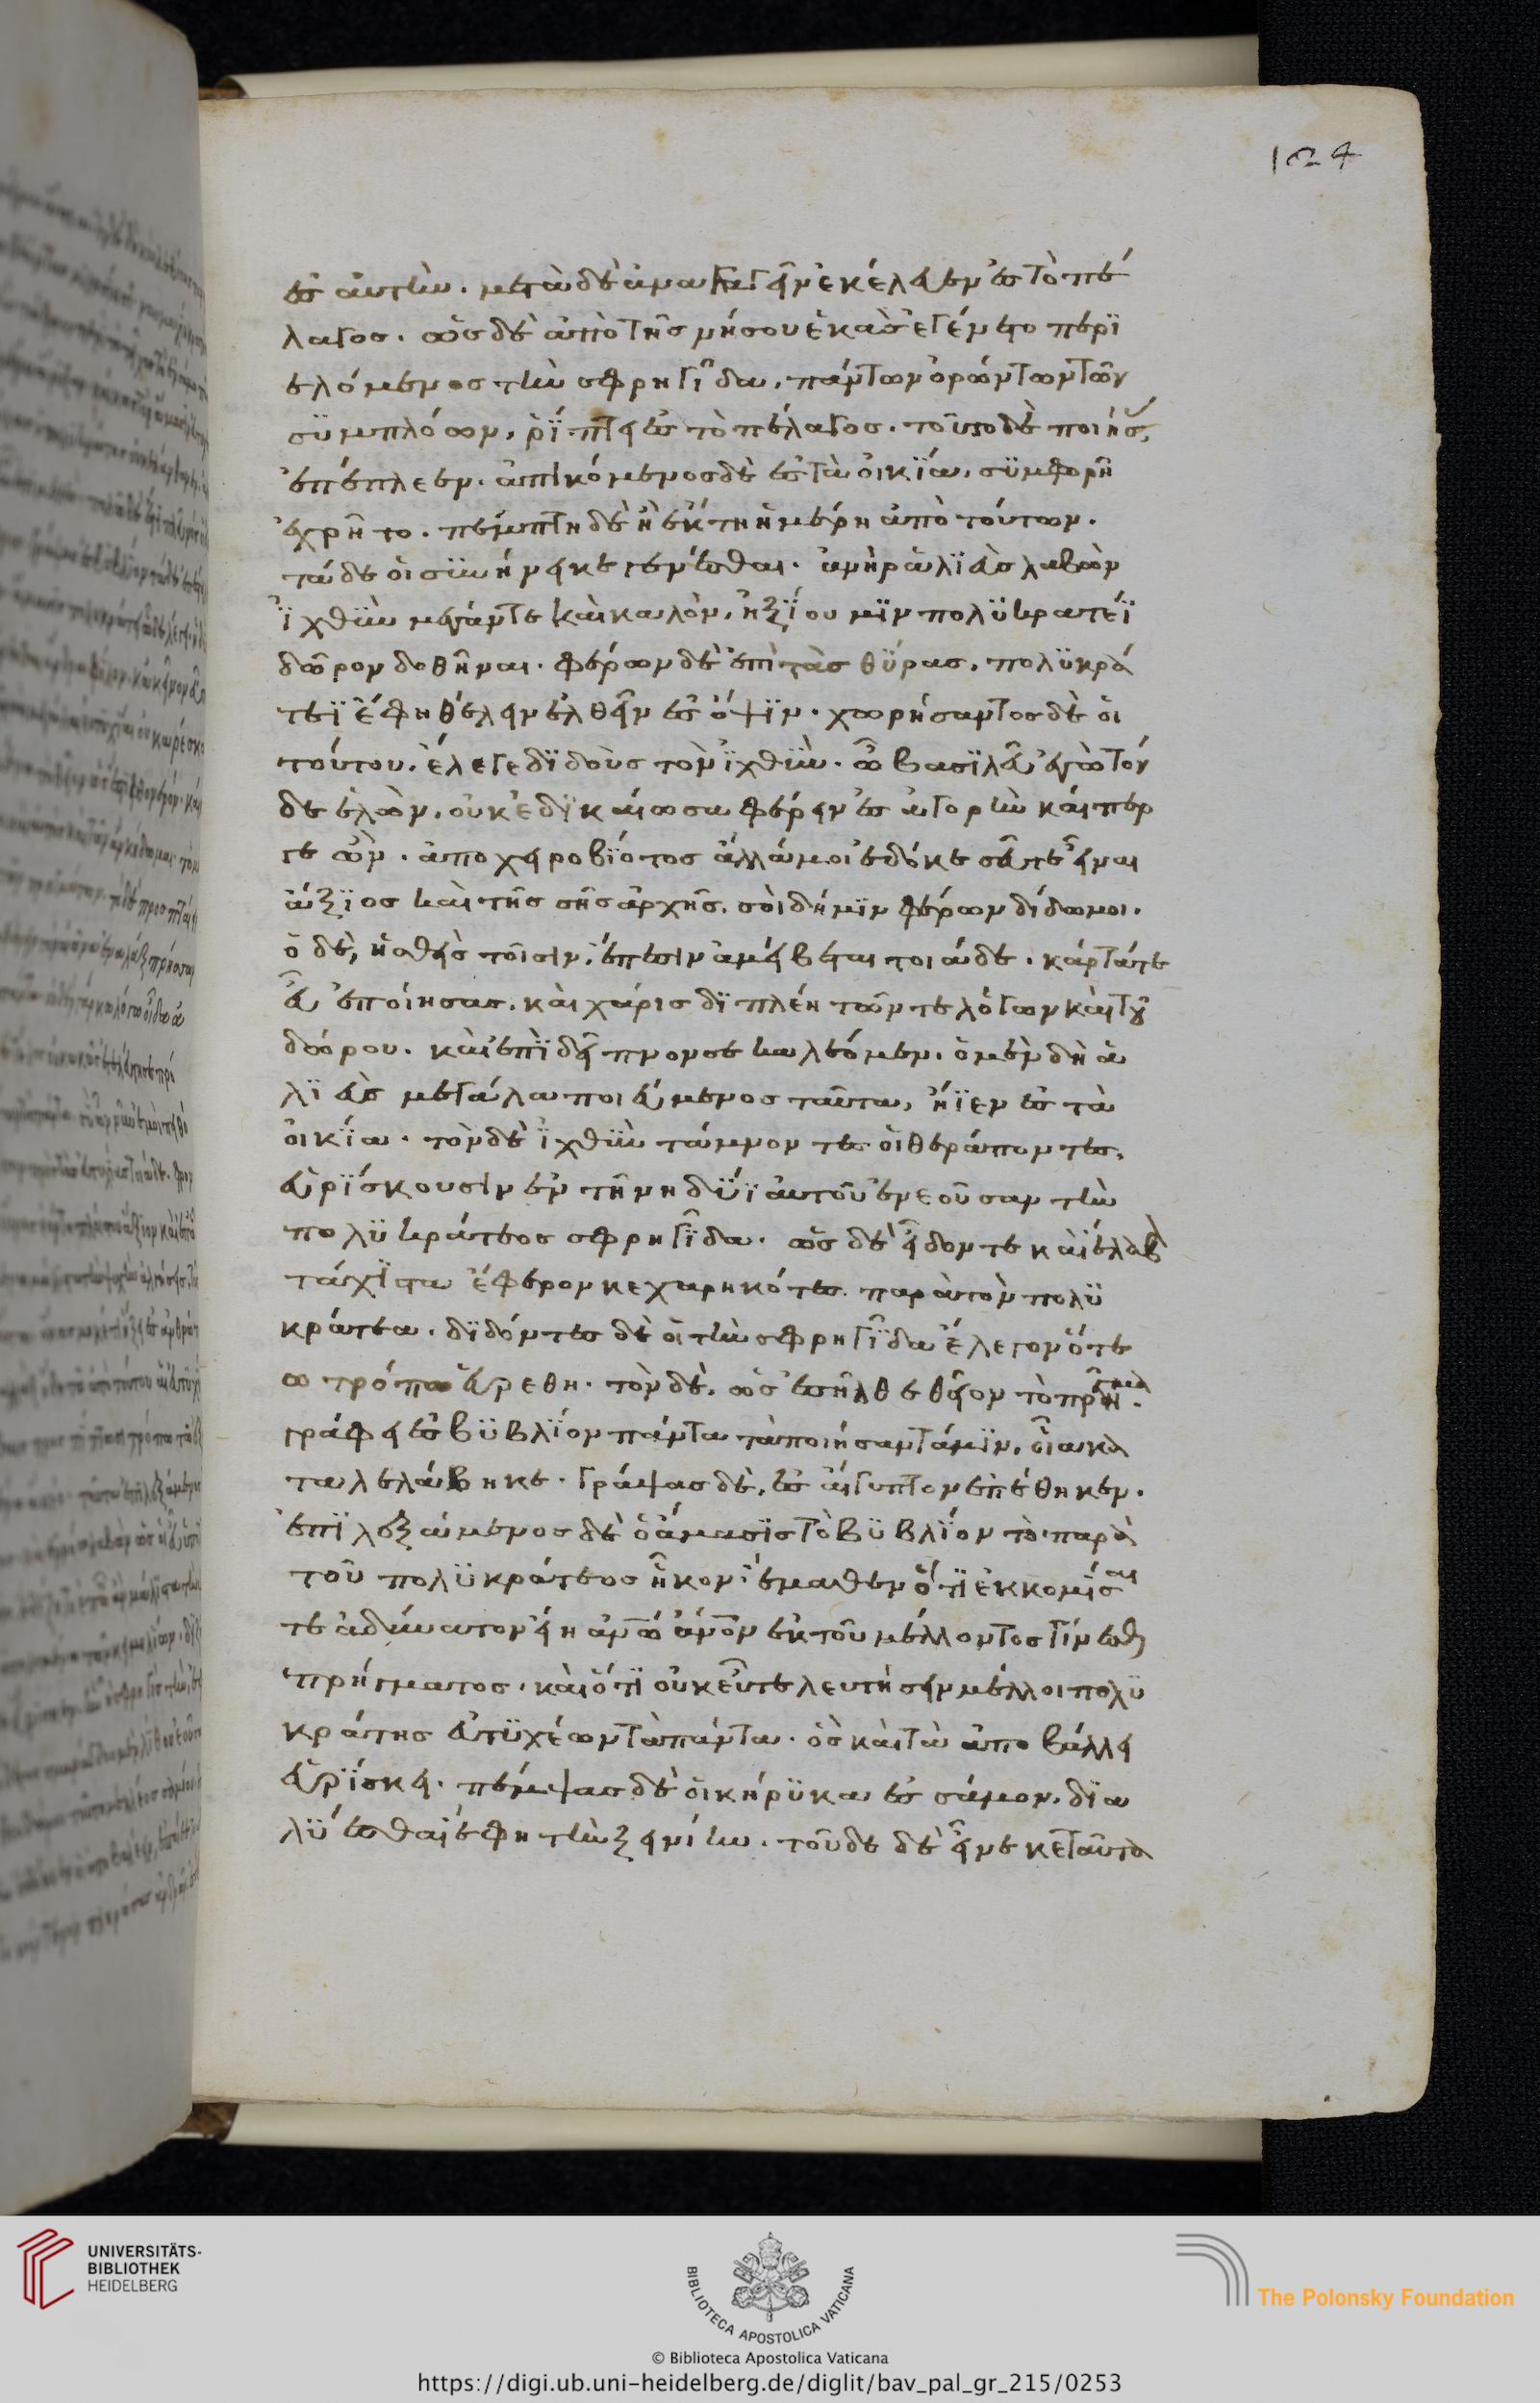 124
ἐς αὐτήν. μετὰ δὲ ἀναγαγεῖν ἐκέλευεν ἐς τὸ πέ
λαγος. ὡς δὲ ἀπὸ τῆς νήσου ἑκὰς ἐγένετο περϊ
ελόμενος τὴν σφρηγῖδα, πάντων ὁρώντων τῶν
συμπλόων, ῥΐπτει ἐς τὸ πέλαγος. τοῦτο δὲ ποιήσας,
ἀπέπλεεν. ἀπικόμενος δὲ ἐς τὰ οἰκΐα, συμφορῆ
ἐχρῆτο. πέμπτη δὲ ἢ ἕκτη ἡμέρη ἀπὸ τούτων.
τάδε οἱ συνήνεικε γενέσθαι. ἀνὴρ ἁλϊεὺς λαβὼν
ἰχθὺν μέγαν τε καὶ καλὸν, ἠξΐου μϊν πολυκρατέϊ
δῶρον δοθῆναι. φέρων δὲ ἐπὶ τὰς θύρας, πολυκρά
τεϊ ἔφη θέλειν ἐλθεῖν ἐς ὄψϊν. χωρήσαντος δὲ οἱ
τούτου, ἔλεγε δϊδοὺς τὸν ἰχθύν. ὦ βασϊλεῦ ἐγὼ τόν
δε ἑλὼν, οὐκ ἐδϊκαίωσα φέρειν ἐς ἀγορὴν καίπερ
γε ὢν. ἀποχειροβΐοτος ἀλλά μοι ἐδόκεε σεῦ τε εἶναι
ἄξϊος καὶ τῆς σῆς ἀρχῆς. σοὶ δή μϊν φέρων δίδωμοι.
ὁ δὲ, ἡσθεὶς τοῖσιν ἔπεσιν ἀμείβεται τοιάδε. κάρτά τε
εὖ ἐποίησας. καὶ χάρις δϊπλέη τῶν τε λόγων καὶ τοῦ
δώρου. καὶ ἐπϊ δεῖπνόν σε καλέομεν. ὁ μὲν δὴ ἁ
λϊεὺς μεγάλα ποιεύμενος ταῦτα, ἤϊεν ἐς τὰ
οἰκΐα. τὸν δὲ ἰχθὺν τάμνοντες οἱ θεράποντες,
εὑρΐσκουσιν ἐν τῆ νηδύϊ αὐτοῦ ἐνεοῦσαν τὴν
πολυκράτεος σφρηγῖδα. ὡς δὲ εἶδόν τε καὶ ἔλαβον
τάχϊστα ἔφερον κεχαρηκότες παρὰ τὸν πολυ
κράτεα. δϊδόντες δὲ οἱ τὴν σφρηγῖδα ἔλεγον ὅτε
ω τρόπω εὑρέθη. τὸν δὲ, ὡς ἐσῆλθε θεῖον τὸ πρῆγμα.
γράφει ἐς βυβλΐον πάντα τὰ ποιήσαντά μϊν, οἷα κα
ταλελάβηκε. γράψας δὲ, ἐς αἴγυπτον ἐπέθηκεν.
ἐπϊλεξάμενος δὲ ὁ ἄμασϊς τὸ βυβλΐον τὸ παρὰ
τοῦ πολυκράτεος ἧκον ἔμαθεν ὅτϊ ἐκκομίσαι
τε ἀδύνατον εἴη ἀνω ἀνον ἐκ τοῦ μέλλοντος γίνεσθαι
πρήγματος. καὶ ὅτϊ οὐκ εὖ τελευτήσειν μέλλοι πολυ
κράτης εὐτυχέων τὰ πάντα. ὃς καὶ τὰ ἀποβάλλει
εὑρΐσκει. πέμψας δὲ οἱ κήρυκα ἐς σάμον. δϊα
λύεσθαι ἔφη τὴν ξεινίην. τοῦδε δὲ εἵνεκε ταῦτα
UNIVERSITÄTS-
BIBLIOTHEK
HEIDELBERG
BIBLIOTECA APOSTOLICA VATICANA
The Polonsky Foundation
© Biblioteca Apostolica Vaticana
https://digi.ub.uni-heidelberg.de/diglit/bav_pal_gr_215/0253